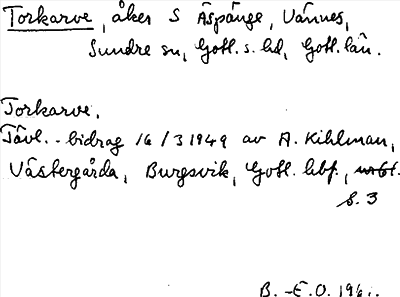 Torkarve, åker S Äspänge, Vännes,
Sundre sn, Gotl. s. hd, Gotl. län.
Torkarve.
Tävl.-bidrag 16/3 1949 av A. Kihlman,
Västergårda, Burgsvik, Gotl.
s. 3
B.-E.O. 196